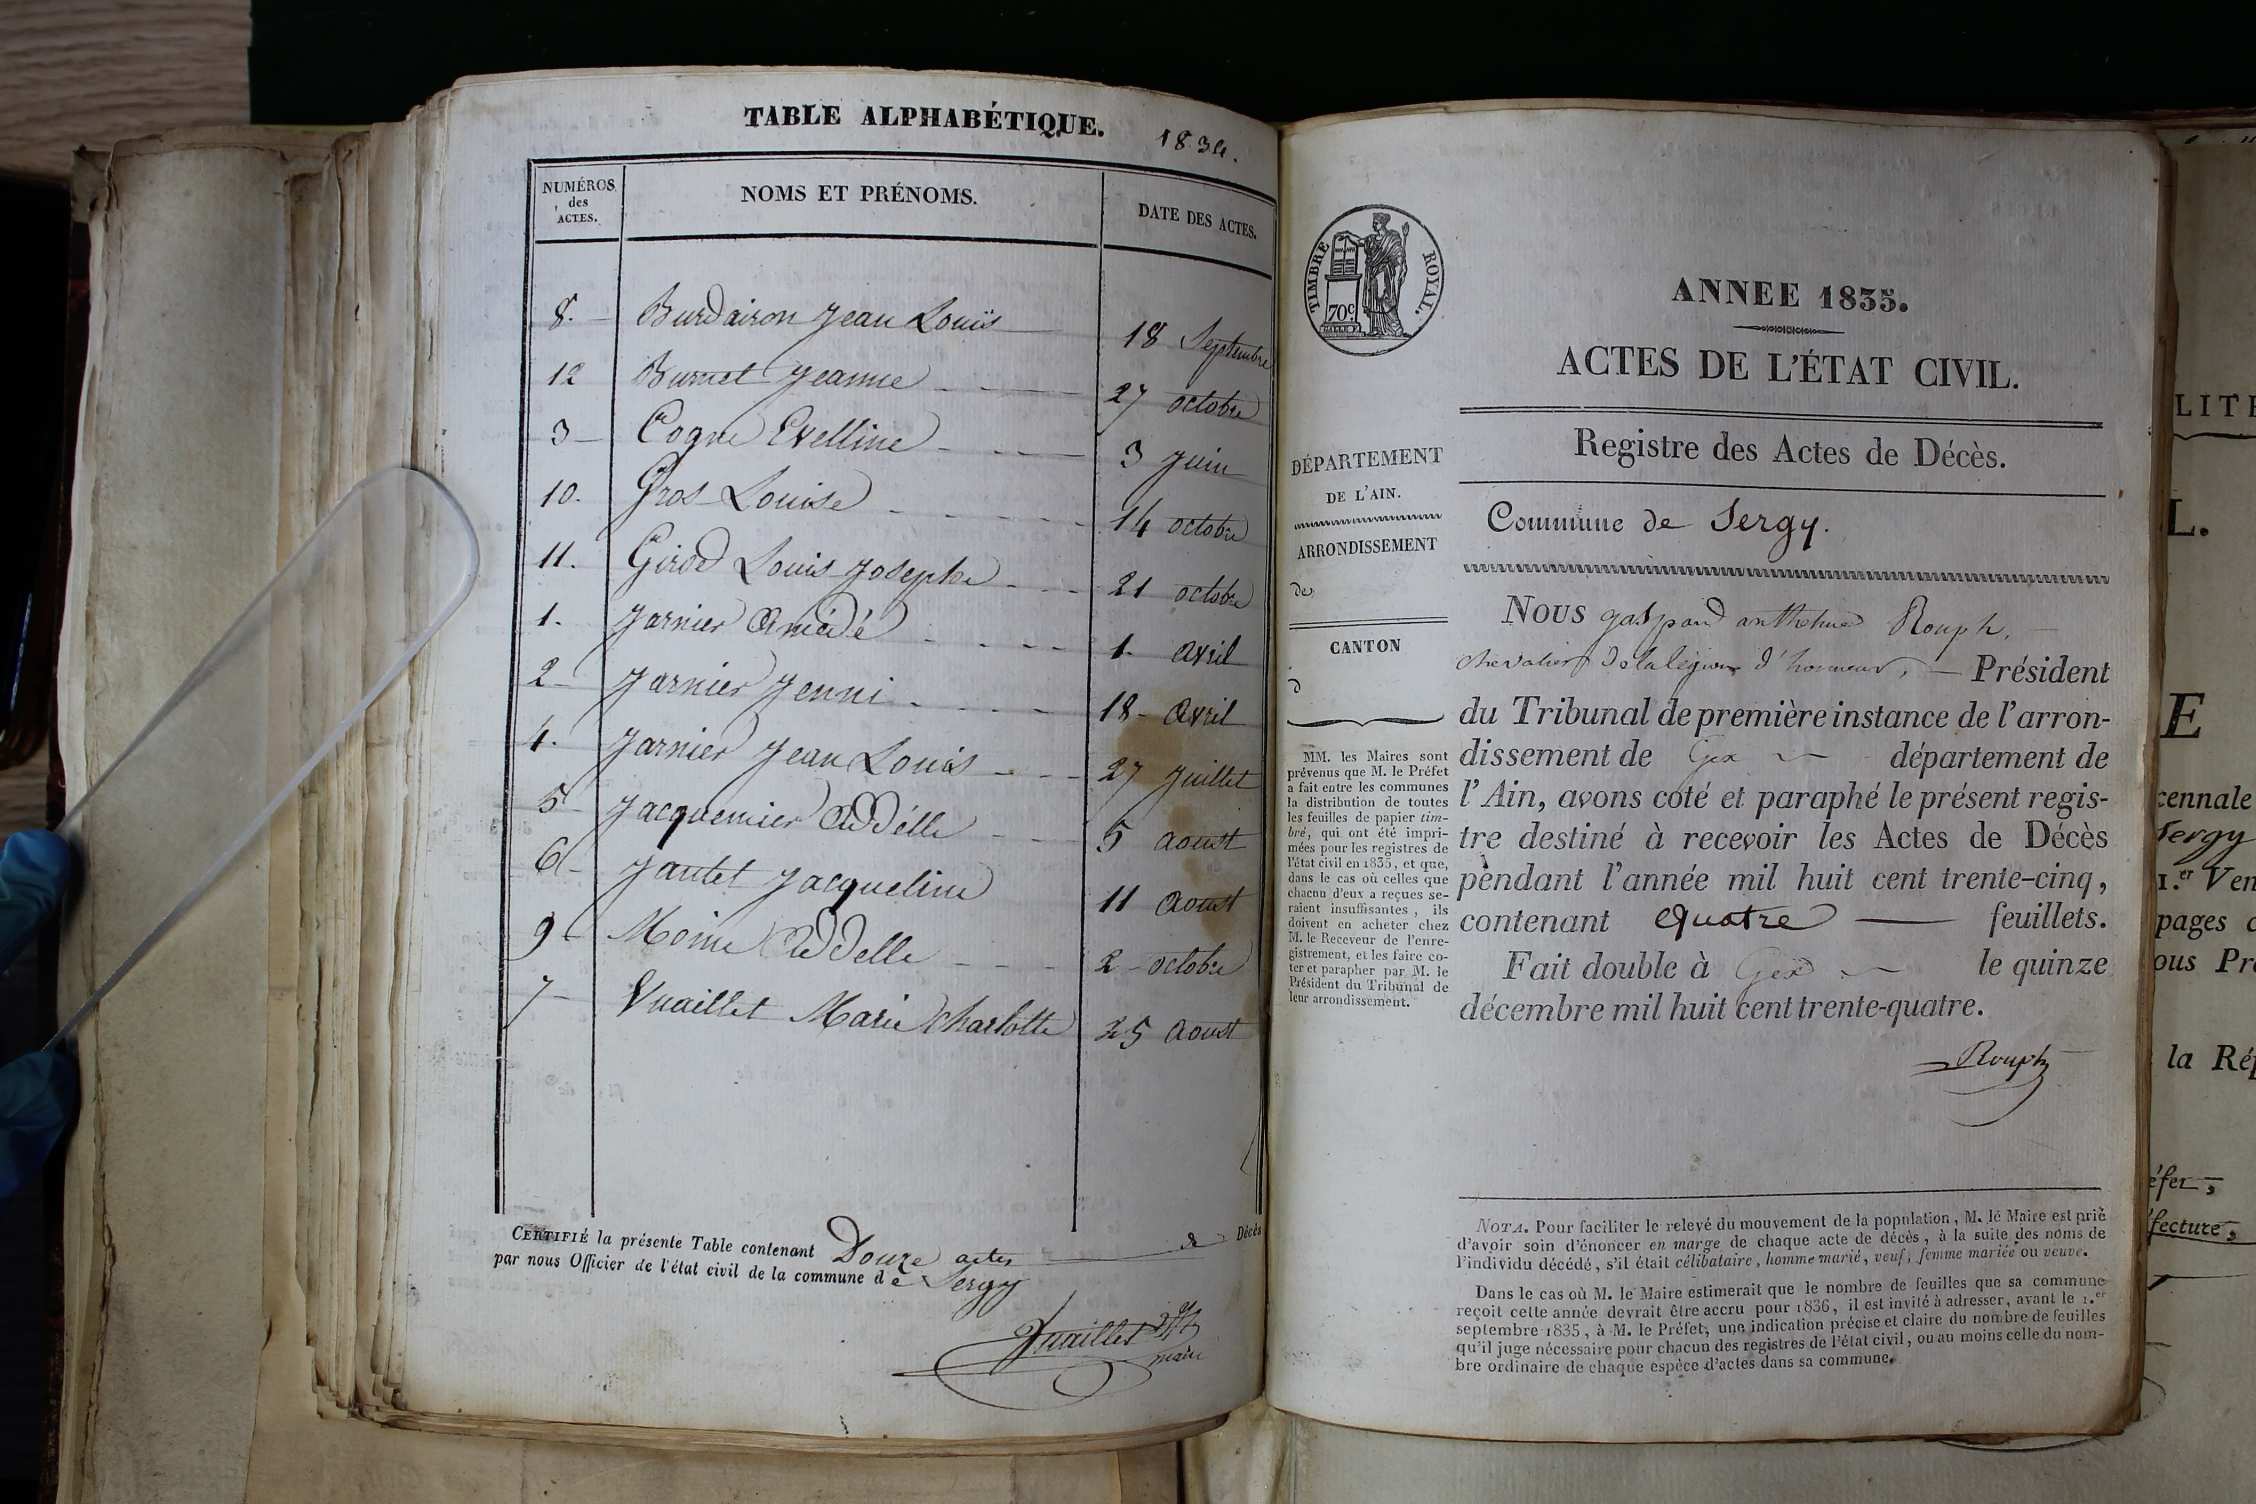 TABLE ALPHABÉTIQUE. 1834.
NUMÉROS des ACTES.
NOMS ET PRÉNOMS.
DATE DES ACTES.
8. Burdairon Jean Louis 18 Septembre
12 Burnet Jeanne 27 octobre
3 Cogne Evelline 3 Juin
10. Gros Louise 14 octobre
11. Girod Louis Josephe 21 octobre
1. Jarnier Amédé 1. avril
2 Jarnier Jenni 18 avril
4. Jarnier Jean Louis 27 Juillet
5 Jacquemier Addélle 5 aoust
6 Jautet Jacqueline 11 aoust
9 Moine Addelle 2 octobre
7 Vuaillet Marie Charlotte 25 aoust
CERTIFIÉ la présente Table contenant Douze actes de Décès
par nous Officier de l'état civil de la commune de Sergy
Vuaillet
maire
TIMBRE ROYAL.
70c.
ANNEE 1835.
ACTES DE L'ÉTAT CIVIL.
Registre des Actes de Décès.
Commune de Sergy.
DÉPARTEMENT
DE L'AIN.
ARRONDISSEMENT
de
CANTON
d
MM. les Maires sont
prévenus que M. le Préfet
a fait entre les communes
la distribution de toutes
les feuilles de papier tim-
bré, qui ont été impri-
mées pour les registres de
l'état civil en 1835, et que,
dans le cas où celles que
chacun d'eux a reçues se-
raient insuffisantes, ils
doivent en acheter chez
M. le Receveur de l'enre-
gistrement, et les faire co-
ter et parapher par M. le
Président du Tribunal de
leur arrondissement.
NOUS gaspard anthelme Rouph,
chevalier de la légion d'honneur, Président
du Tribunal de première instance de l'arron-
dissement de Gex département de
l'Ain, avons coté et paraphé le présent regis-
tre destiné à recevoir les Actes de Décès
pendant l'année mil huit cent trente-cinq,
contenant quatre feuillets.
Fait double à Gex le quinze
décembre mil huit cent trente-quatre.
Rouph
NOTA. Pour faciliter le relevé du mouvement de la population, M. le Maire est prié
d'avoir soin d'énoncer en marge de chaque acte de décès, à la suite des noms de
l'individu décédé, s'il était célibataire, homme marié, veuf, femme mariée ou veuve.
Dans le cas où M. le Maire estimerait que le nombre de feuilles que sa commune
reçoit cette année devrait être accru pour 1836, il est invité à adresser, avant le 1.er
septembre 1835, à M. le Préfet, une indication précise et claire du nombre de feuilles
qu'il juge nécessaire pour chacun des registres de l'état civil, ou au moins celle du nom-
bre ordinaire de chaque espèce d'actes dans sa commune.
LITE
L.
E
cennale
Sergy
1.er Ven
pages
ous Pr
la Rép
éfet,
fecture,